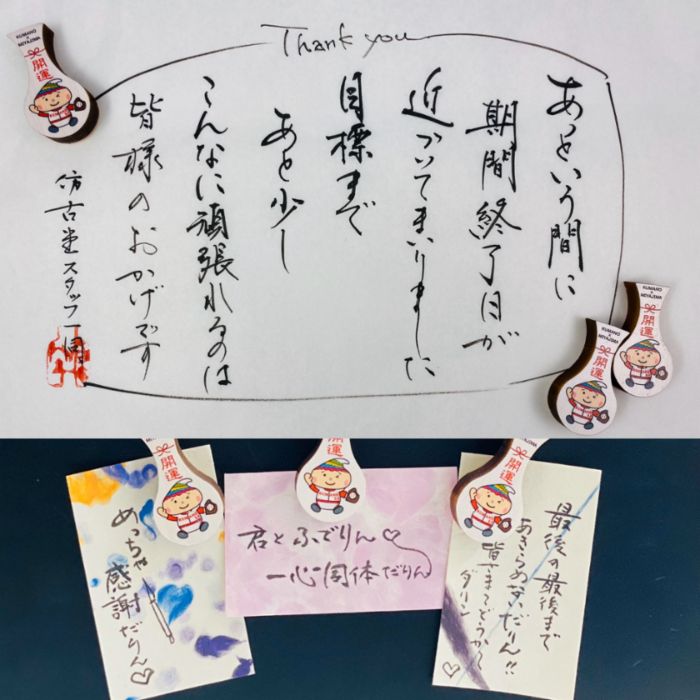 Thank you
あっという間に
期間終了日が
近づいてまいりました
目標まで
あと少し
こんなに頑張れるのは
皆様のおかげです
仿古堂スタッフ一同
KUMANO
MIYAJIMA
開運
KUMANO
MIYAJIMA
開運
KUMANO
MIYAJIMA
開運
めっちゃ
感謝だりん
開運
君とふでりん
一心同体だりん
開運
最後の最後まで
あきらめないだりん!!
皆さまどうかく
ダーリン
開運